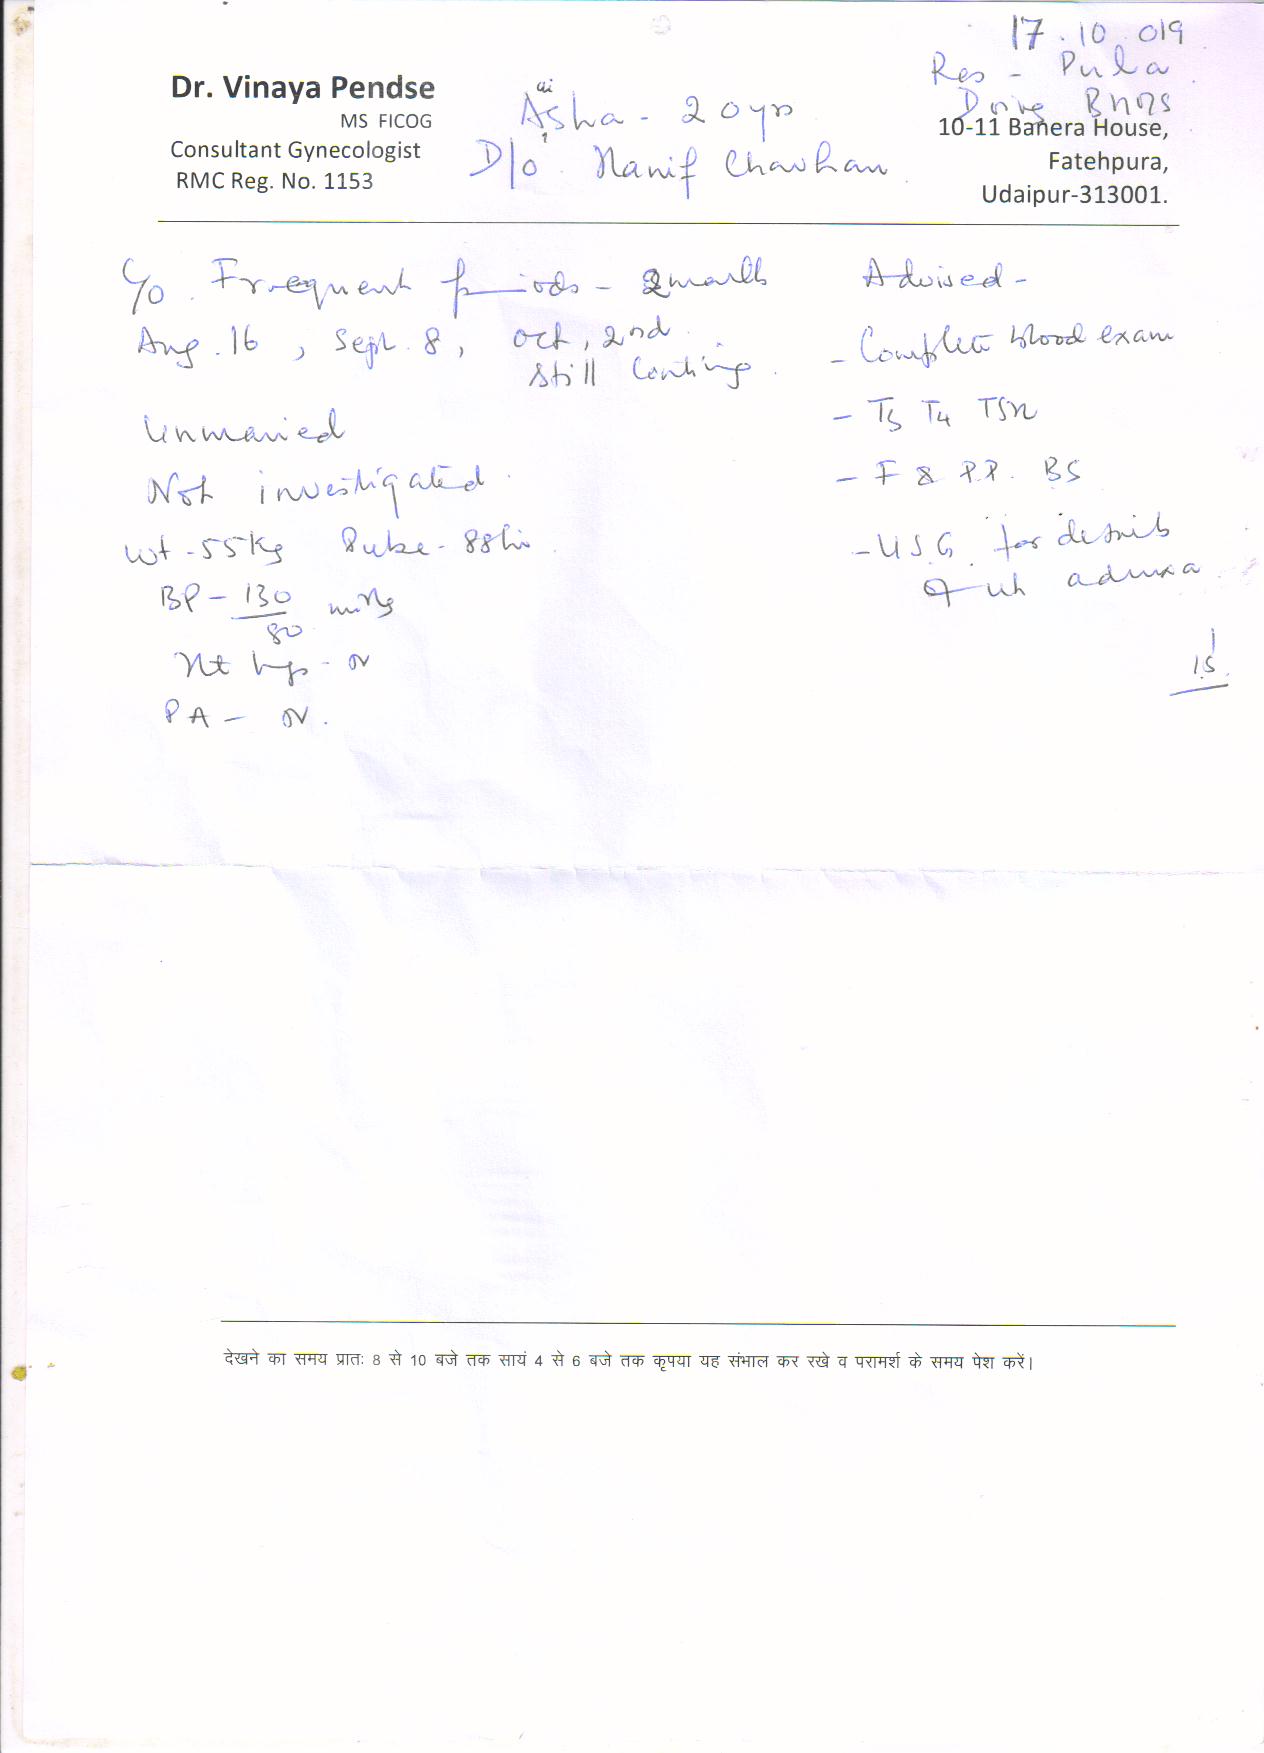 17.10.019
Res - Pula
Doing BHMS
Dr. Vinaya Pendse
MS FICOG
Consultant Gynecologist
RMC Reg. No. 1153
ai
Asha - 20yrs
D/o Hanif Chauhan
10-11 Banera House,
Fatehpura,
Udaipur-313001.
C/o. Frequent periods - 2 months
Aug. 16, Sept. 8, Oct, 2nd
still conting.
Unmarried
Not investigated.
Wt - 55 Kg Pulse - 88
BP - 130/80 mmHg
Ht - N
PA - N.
Advised -
- Complete blood exam
- T3 T4 TSH
- F & P.P. BS
- U S G for details
of adnexa
देखने का समय प्रातः 8 से 10 बजे तक सायं 4 से 6 बजे तक कृपया यह संभाल कर रखे व परामर्श के समय पेश करें।